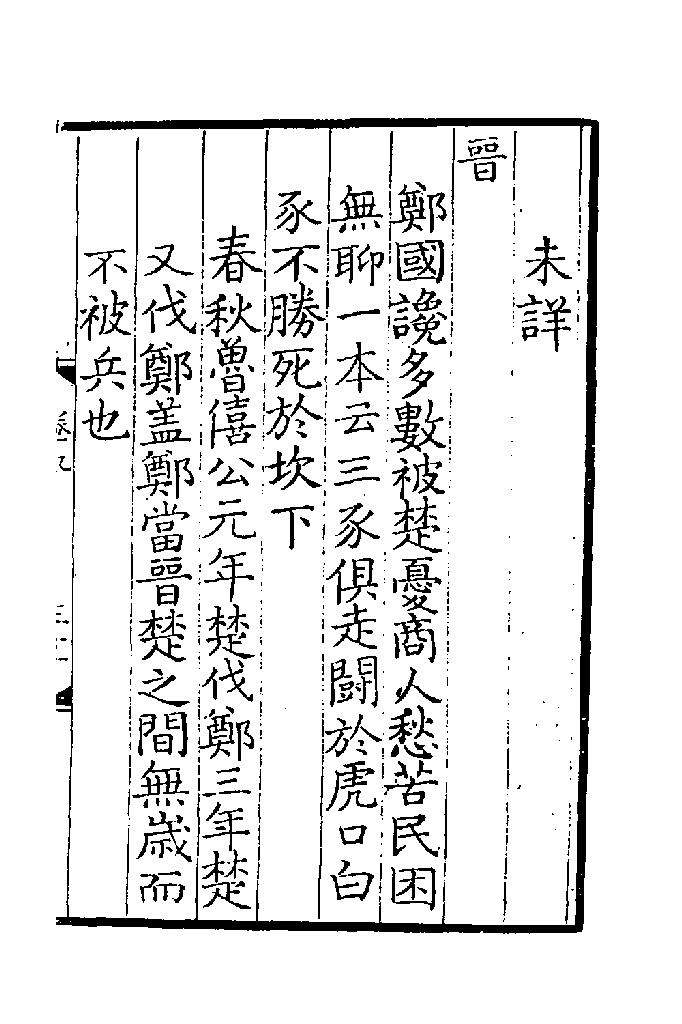 未詳
晉
鄭國讒多數被楚憂商人愁苦民困
無聊一本云三豕俱走鬪於虎口白
豕不勝死於坎下
春秋魯僖公元年楚伐鄭三年楚
又伐鄭盖鄭當晉楚之間無歳而
不被兵也